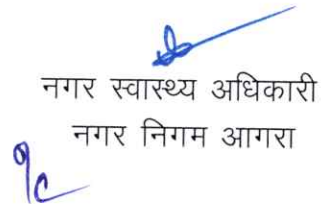 नगर स्वास्थ्य अधिकारी
नगर निगम आगरा